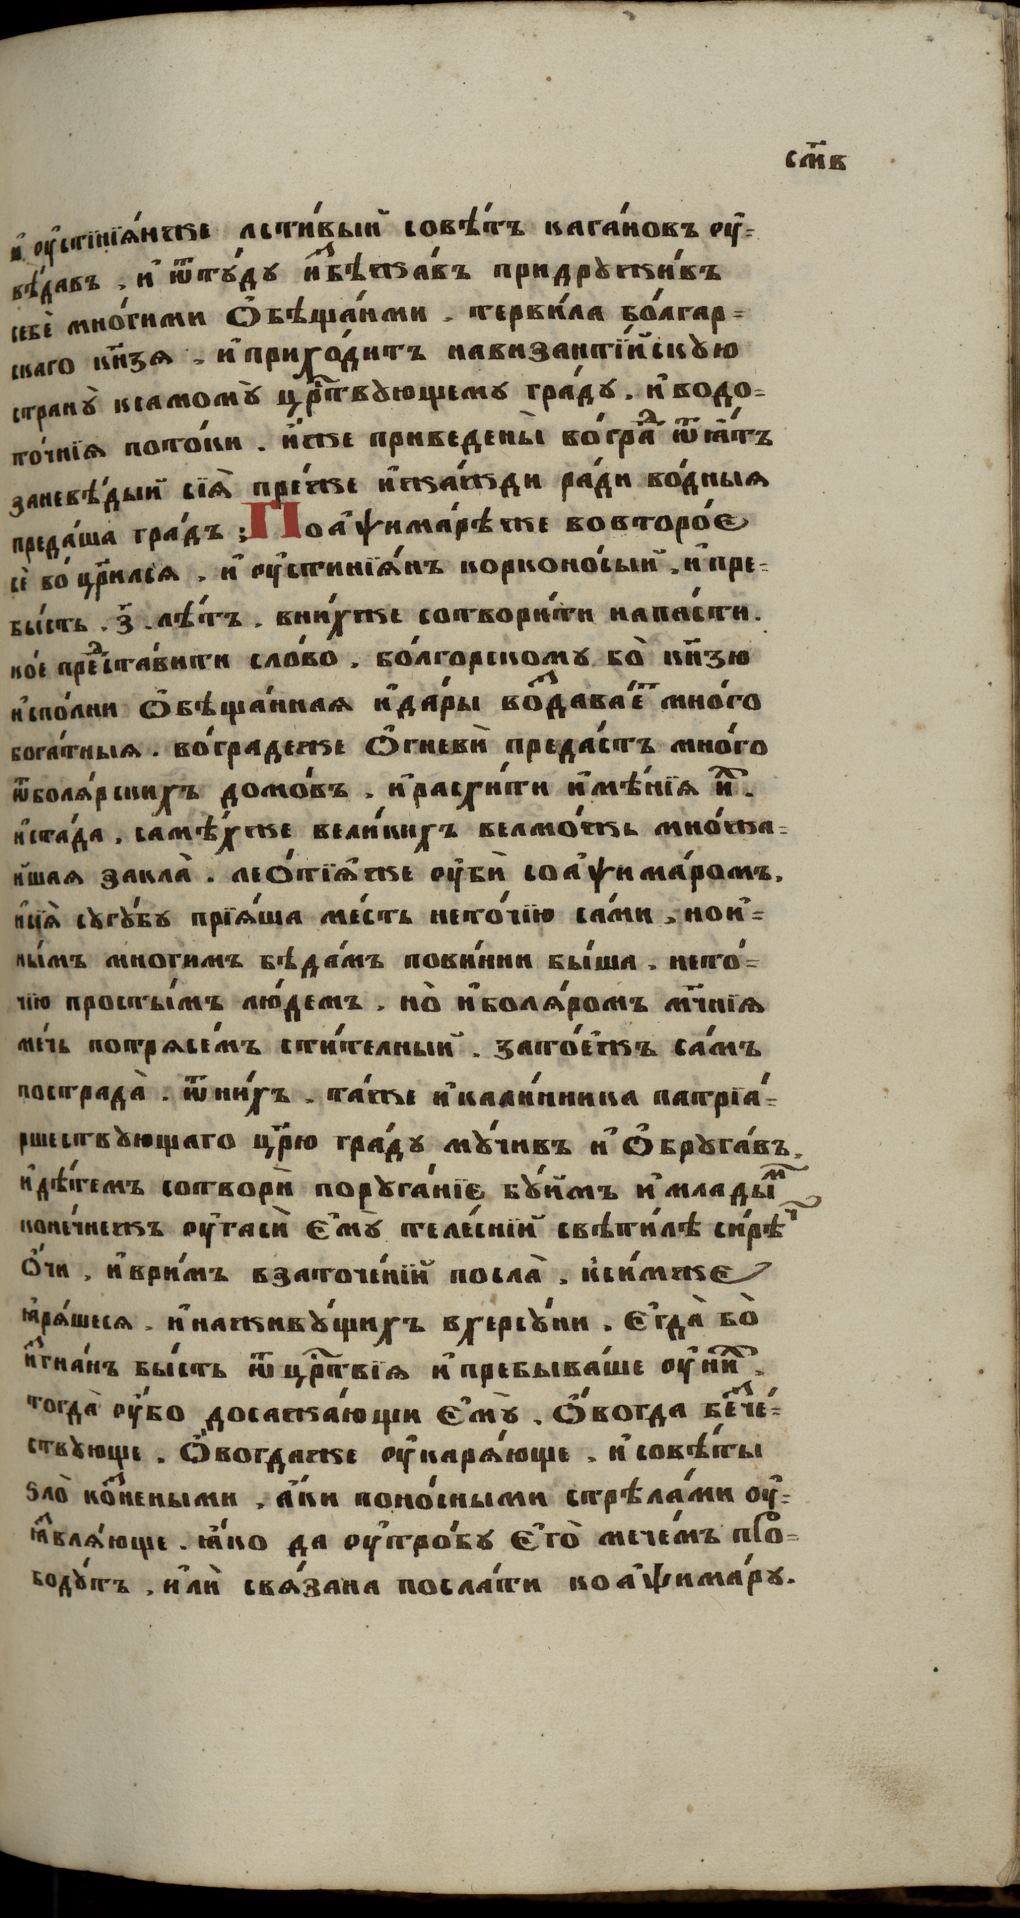 см҃в
и҆ ᲂу҆стїнїѧ́нже лсти́вый совѣ́тъ кага́новъ ᲂу҆=
вѣ́давъ , и҆ ѿту́ду и҆ⷥбѣжа́въ придружи́въ
себѐ мно́гими ѻ҆бѣща́нми . терви́ла бо́лгар=
скаго кн҃зѧ , и҆ прихо́дитъ навизанті́йскую
странꙋ̀ ксамомꙋ̀ црⷭ҇твꙋющемꙋ гра́дꙋ . и҆ водо=
то́чнїѧ пото́ки . и҆́же приведены̀ во́граⷣ ѿѧ́тъ
заневѣ́дый сїѧ̀ пре́же и҆жа́жди ра́ди во́дныѧ
преда́ша гра́дъ ; Поаѱима́рѣже вовторо́є
сѐ во́цр҃илсѧ , и҆ ᲂу҆стинїѧ́нъ корконо́сый , и҆ пре=
бы́сть . з҃ . лѣ́тъ . вни́хже сотвори́ти напа́сти .
ко́е преⷣста́вити сло́во . бо́лгорскому бо̀ кн҃зю
и҆спо́лни ѻ҆бѣща́ннаѧ и҆да́ры воⷥдава́еⷮ мно́го
бога́тныѧ . во́градеже ѻ҆гневѝ преда́стъ мно́го
ѿболѧ́рскихъ домо́въ , и҆расхи́ти и҆мѣ́нїѧ и҆ⷯ .
и҆ста́да , самѣ́хже вели́кихъ велмо́жь мно́жа=
йшаѧ закла̀ . лео́тїѧже ᲂу҆бѝ соаѱима́ромъ ,
и҆сїѧ̀ сугу́бу прїѧ́ша ме́сть нето́чїю са́ми , нои҆=
ны́мъ многимъ бѣда́мъ пови́нни бы́ша . нето́=
чїю просты́мъ лю́демъ , но̀ и҆болѧ́ромъ мч҃нїѧ
ме́чь потрѧсе́мъ сти́телный . зато́ежъ са́мъ
пострада̀ . ѿни́хъ . та́же и҆кали́нника патрїа́=
ршествующаго цр҃ю гра́ду му́чивъ и҆ ѻ҆бруга́въ ,
и҆дѣ́темъ сотворѝ поруга́нїе бу́ймъ и҆ млады́ⷨ
коне́чнежъ ᲂу҆гасѝ є҆мꙋ̀ теле́снїй свѣти́лѣ си́рѣⷱ
ѻ҆́чи , и҆ври́мъ взаточе́нїй посла̀ , и҆си́мже
ꙗ҆рѧ́шесѧ , и҆ наживу́щихъ вхерсу́ни . є҆гда̀ бо̀
и҆ⷥгна́нъ бы́сть ѿ црⷭ҇твїѧ и҆ пребыва́ше ᲂу҆ ни́ⷯ ,
тогда̀ ᲂу҆́бо досажа́ющи є҆мꙋ̀ , ѻ҆́вогда беⷥче́=
ствующе , ѻ҆́вогдаже ᲂу҆карѧ́юще , и҆ совѣ́ты
ѕло̀ ко́ⷥненными , а҆́ки поно́сными стрѣла́ми ᲂу҆=
ꙗ҆ⷥвлѧ́юще . ꙗ҆́ко да ᲂу҆тро́бу є҆го̀ мече́мъ про=
боду́тъ , и҆лѝ свѧ́зана посла́ти коаѱима́ру .